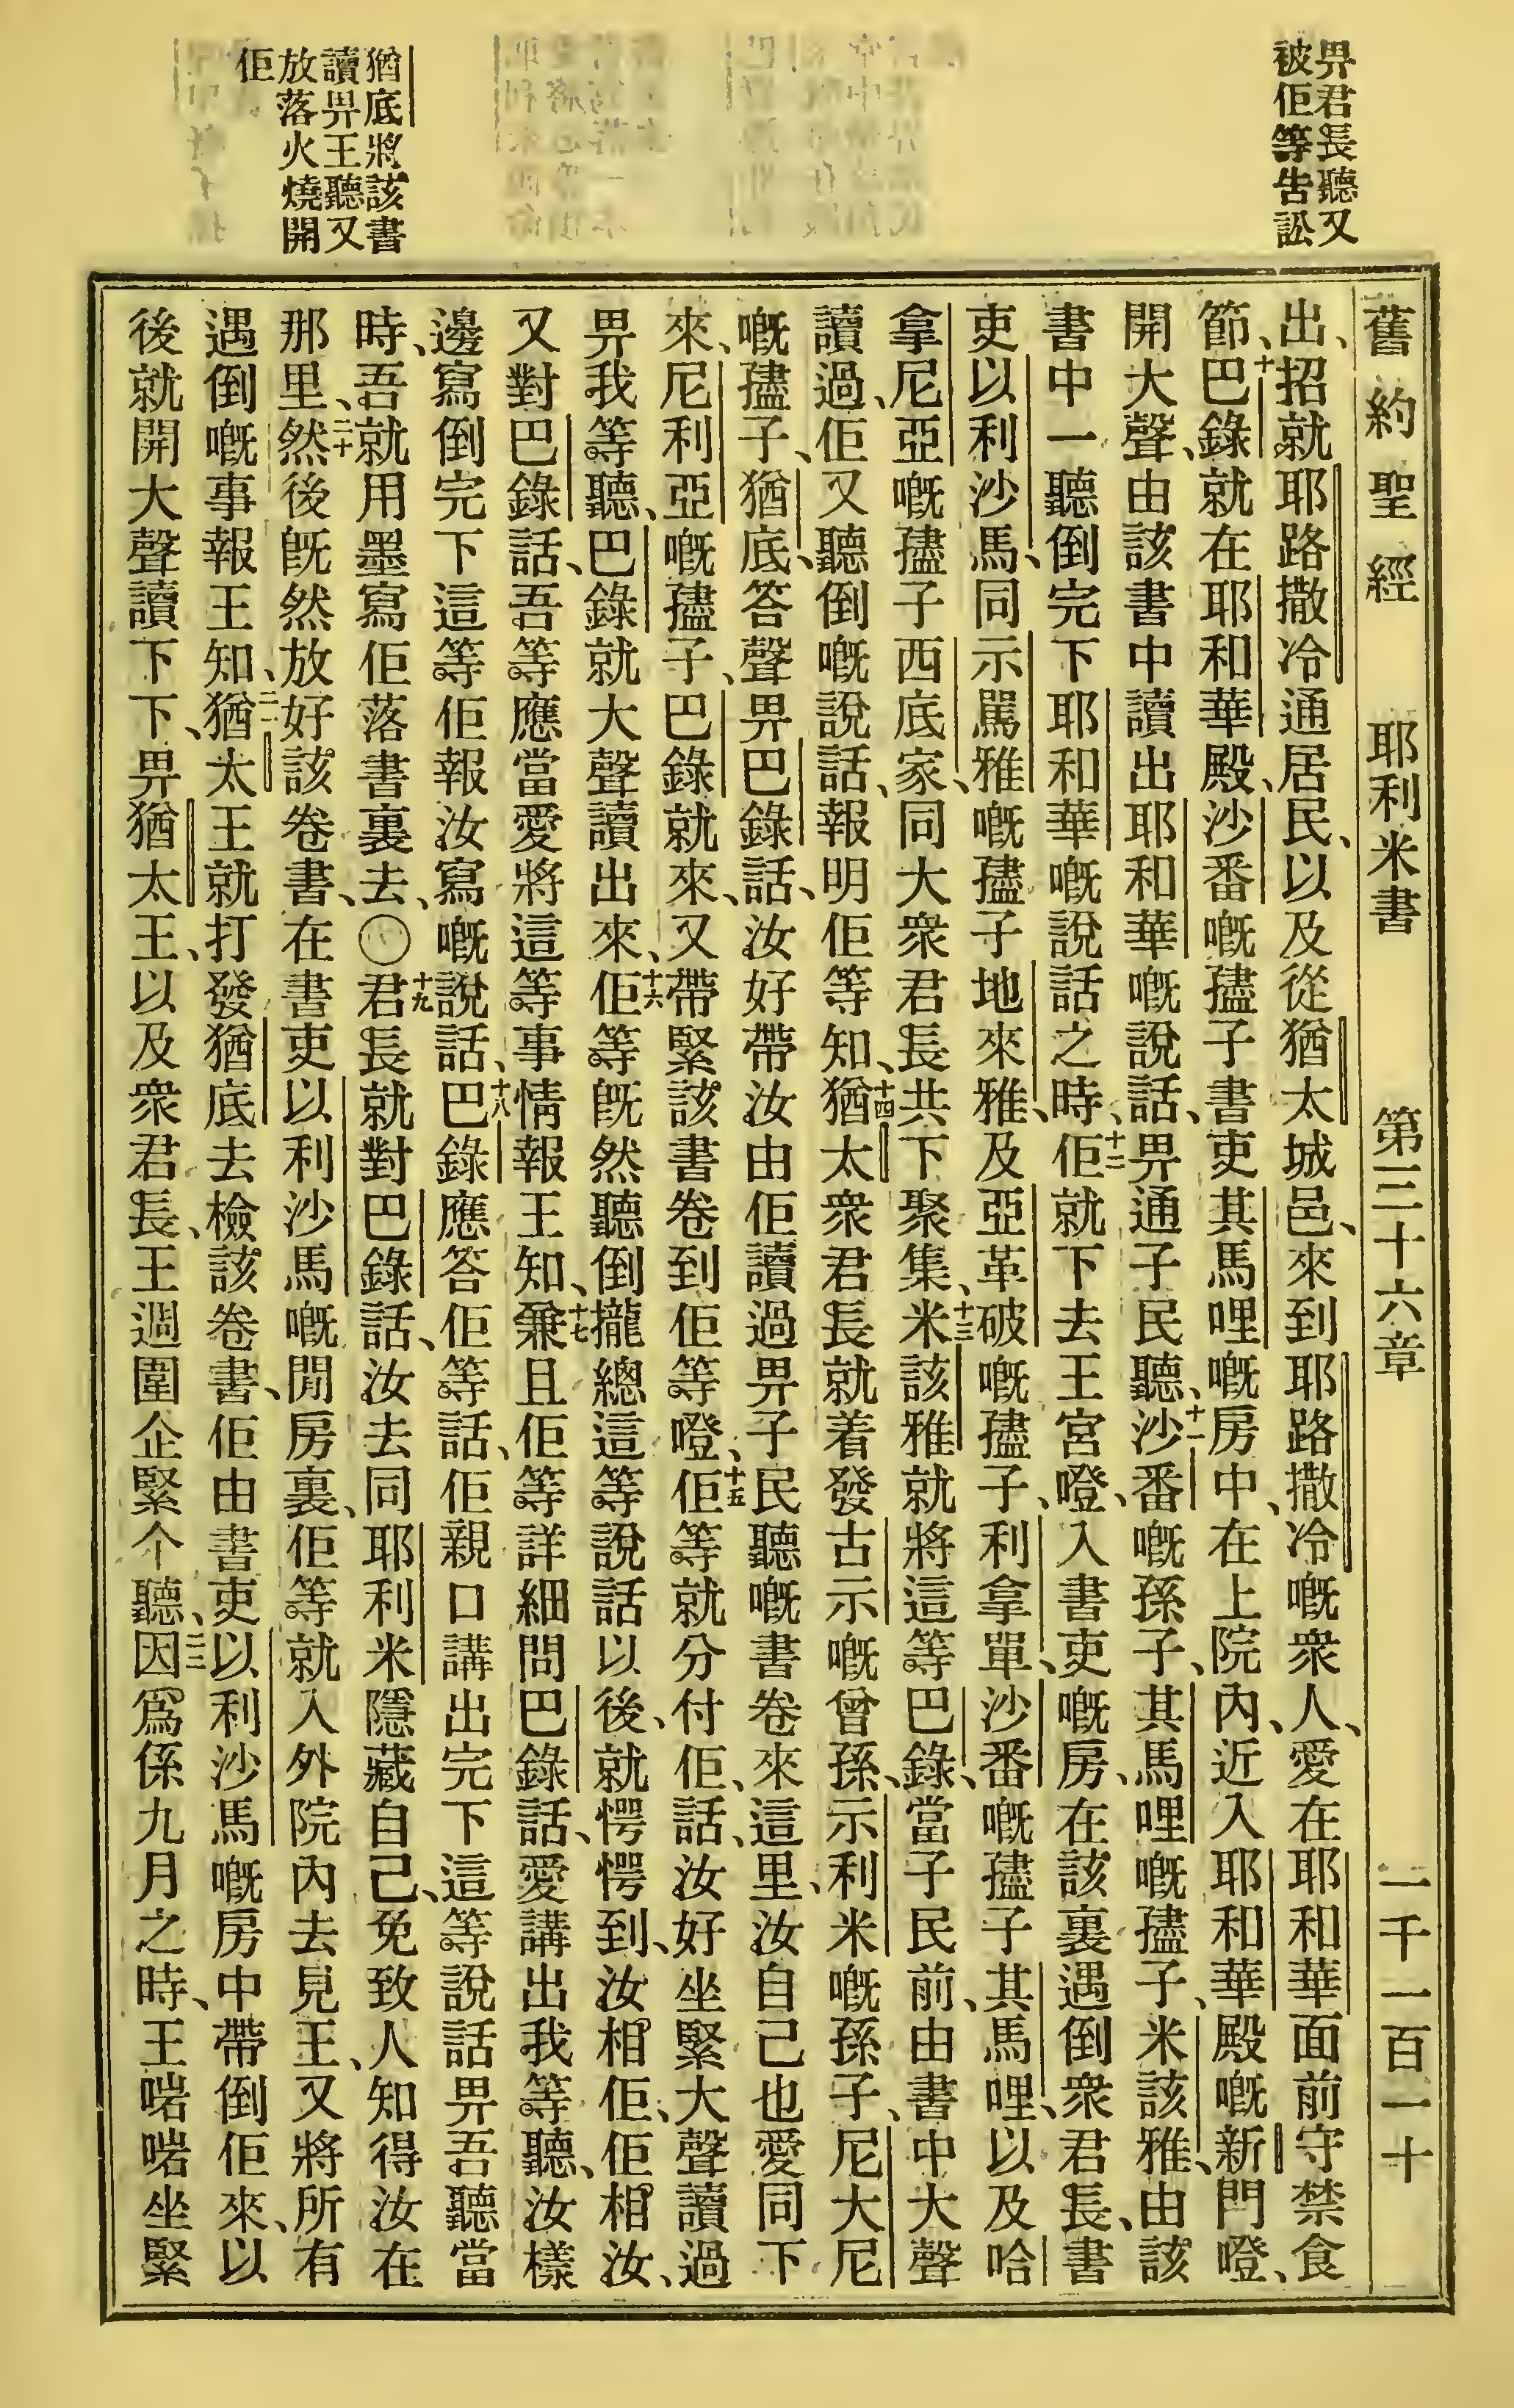 畀君長聽又
被佢等告訟
猶底將該書
讀畀王聽又
放落火燒開
佢
舊約聖經 耶利米書 第三十六章 一千一百一十
出、招就耶路撒冷通居民、以及從猶太城邑、來到耶路撒冷嘅衆人、愛在耶和華面前守禁食
節、十巴錄就在耶和華殿、沙番嘅孻子書吏其馬哩嘅房中、在上院內、近入耶和華殿嘅新門嶝、
開大聲、由該書中讀出耶和華嘅說話、畀通子民聽、十一沙番嘅孫子、其馬哩嘅孻子、米該雅、由該
書中一聽倒完下耶和華嘅說話之時、十二佢就下去王宮嶝、入書吏嘅房、在該裏遇倒衆君長、書
吏以利沙馬、同示罵雅嘅孻子地來雅、及亞革破嘅孻子、利拿單、沙番嘅孻子其馬哩、以及哈
拿尼亞嘅孻子西底家、同大衆君長共下聚集、十三米該雅就將這等巴錄、當子民前、由書中大聲
讀過、佢又聽倒嘅說話、報明佢等知、十四猶太衆君長就着發古示嘅曾孫、示利米嘅孫子、尼大尼
嘅孻子、猶底、答聲畀巴錄話、汝好帶汝由佢讀過畀子民聽嘅書卷來這里、汝自己也愛同下
來、尼利亞嘅孻子、巴錄就來、又帶緊該書卷到佢等嶝、十五佢等就分付佢、話、汝好坐緊大聲讀過
畀我等聽、巴錄就大聲讀出來、十六佢等旣然聽倒攏總這等說話以後、就愕愕到、汝相佢、佢相汝、
又對巴錄話、吾等應當愛將這等事情報王知、十七兼且佢等詳細問巴錄話、愛講出我等聽、汝樣
邊寫倒完下這等佢報汝寫嘅說話、十八巴錄應答佢等話、佢親口講出完下這等說話畀吾聽當
時、吾就用墨寫佢落書裏去、〇十九君長就對巴錄話、汝去同耶利米隱藏自己、免致人知得汝在
那里、二十然後旣然放好該卷書、在書吏以利沙馬嘅閒房裏、佢等就入外院內去見王、又將所有
遇倒嘅事報王知、二一猶太王就打發猶底去檢該卷書、佢由書吏以利沙馬嘅房中帶倒佢來、以
後就開大聲讀下下下、畀猶太王、以及衆君長、王週圍企緊个聽、二二因爲係九月之時、王啱啱坐緊